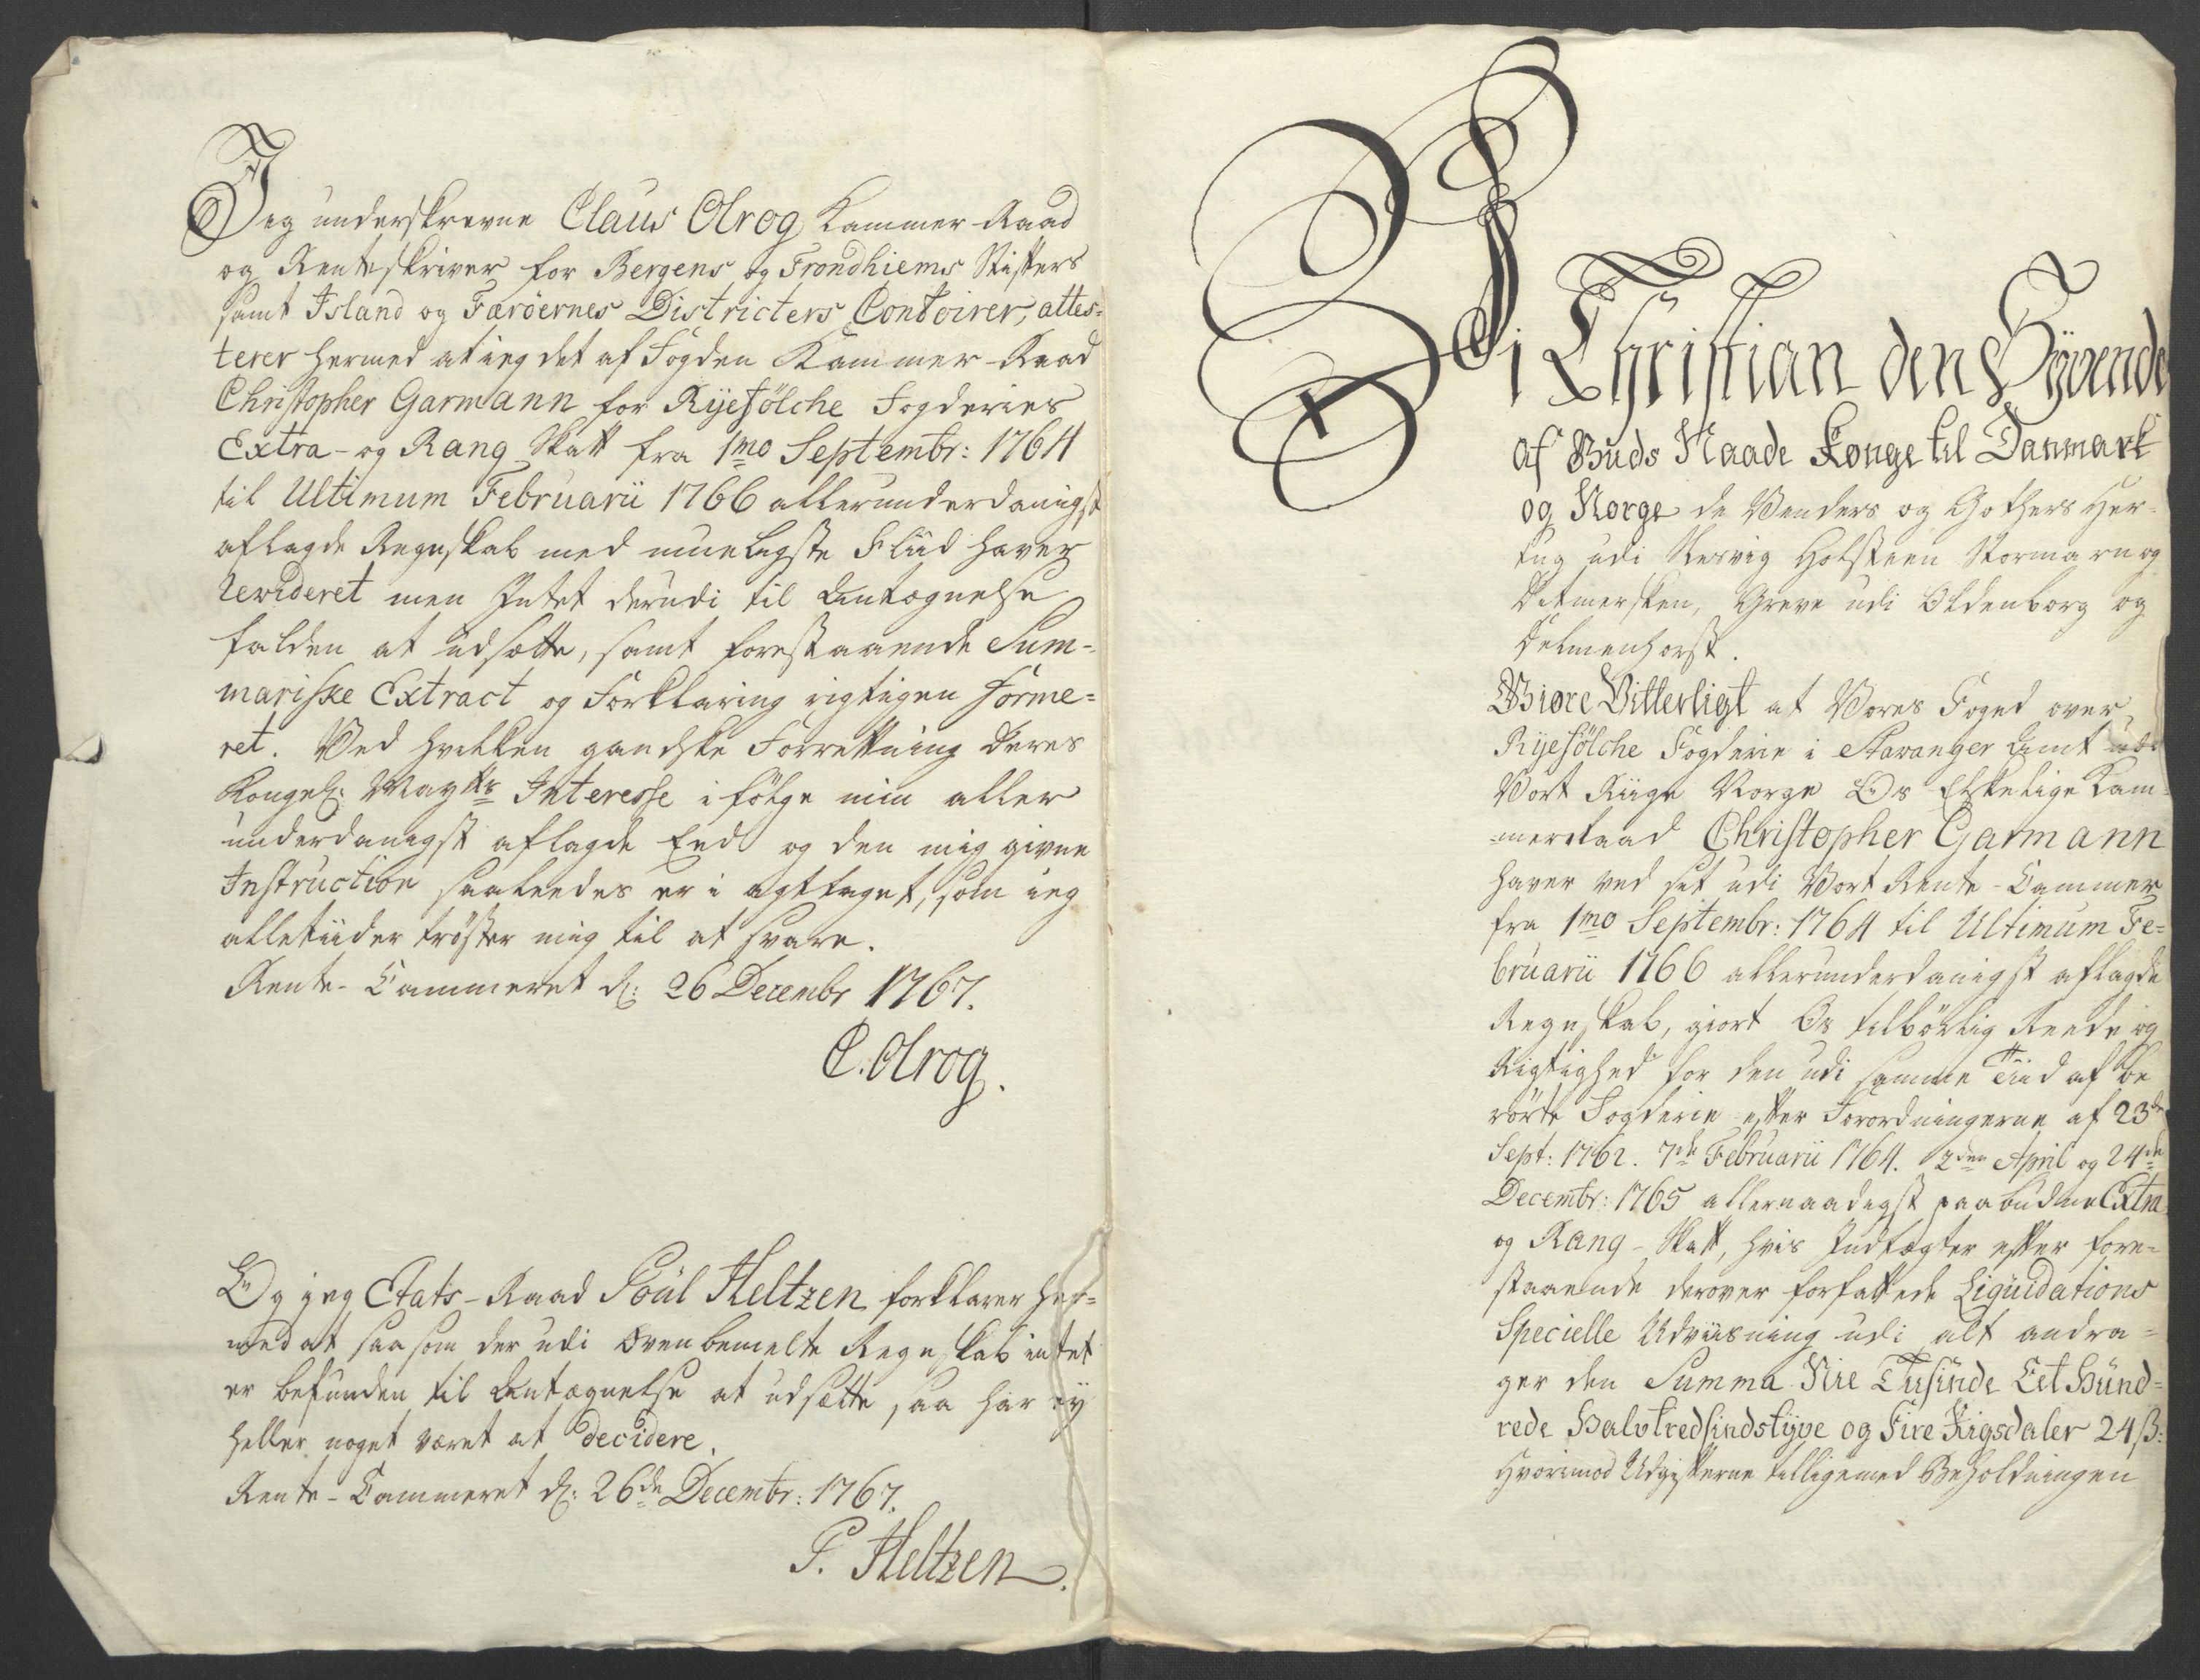 Jeg underskrevne Claus Olrog Kammer-Raad
og Renteskriver for Bergens og Trondhiems Stifters
samt Island og Færöernes Districters Contoirer, attes-
terer hermed at ieg det af Fogden Kammer-Raad
Christopher Garmann for Ryefölche Fogderies
Extra- og Rang-Skatt fra 1mo Septembr: 1764
til Ultimum Februarii 1766 allerunderdanigst
aflagde Regnskab med mueligste Fliid haver
revideret men Intet derudi til Antægnelse
falden at udsætte, samt forestaaende Sum-
mariske Extract og Forklaring rigtigen forme-
ret. Ved hvilken gandske Forrettning Deres
Kongel: Maytts Interesse i fölge min aller
underdanigst aflagde Eed og den mig givne
Instruction saaleedes er i agttaget, som ieg
alletiider tröster mig til at svare.
Rente-Cammeret d: 26 Decembr 1767.
C. Olrog.
Og jeg Etats-Raad Poül Heltzen forklarer her-
med at saasom der udi ovenbemelte Regnskab intet
er befunden til Antægnelse at udsætte, saa har ey
heller noget været at decidere.
Rente-Cammeret d: 26de Decembr: 1767.
P. Heltzen.
Vi Christian den Syvende
af Guds Naade Konge til Danmark
og Norge de Venders og Gothers Her-
tug udi Slesvig Holsteen Stormarn og
Ditmersken, Greve udi Oldenborg og
Delmenhorst.
Giøre Vitterligt at Vores Foged over
Ryefölche Fogderie i Stavanger Amt udi
Vort Riige Norge Os Elskelige Kam-
-merRaad Christopher Garmann
haver ved sit udi Vort Rente-Cammer
fra 1mo Septembr: 1764 til Ultimum Fe-
bruarii 1766 allerunderdanigst aflagde
Regnskab, giort Os tilbörlig Reede og
Rigtighed for den udi samme Tiid af be
rörte Fogderie efter Forordningerne af 23de
Sept: 1762. 7de Februarii 1764. 2den April og 24de
Decembr: 1765 allernaadigst paabudne Extra
og Rang-Skatt, hvis Indtægter efter fore-
staaende derover forfattede Liqvidations
Specielle Udviisning udi alt andra-
ger den Summa Nie Tusinde Eet Hünd-
rede Halvtredsindstyve og Fire Rigsdaler 24 ß:
Hvorimod Udgifterne tilligemed Beholdningen